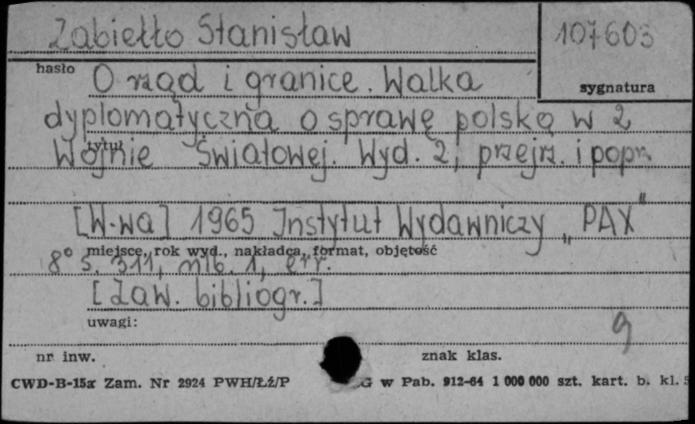 Zabiełło Stanisław
107603
hasło
sygnatura
O rząd i granice. Walka
dyplomatyczna o sprawę polską w 2
tytuł
Wojnie Światowej. Wyd. 2, przejrz. i popr.
[W-wa] 1965 Instytut Wydawniczy „PAX"
miejsce, rok wyd., nakładca, format, objętość
8° s. 311, nlb. 1, err.
[Zaw. bibliogr.]
uwagi:
g
nr inw.
znak klas.
CWD-B-15x Zam. Nr 2924 PWH/Łź/P G w Pab. 912-64 1 000 000 szt. kart. b. kl.